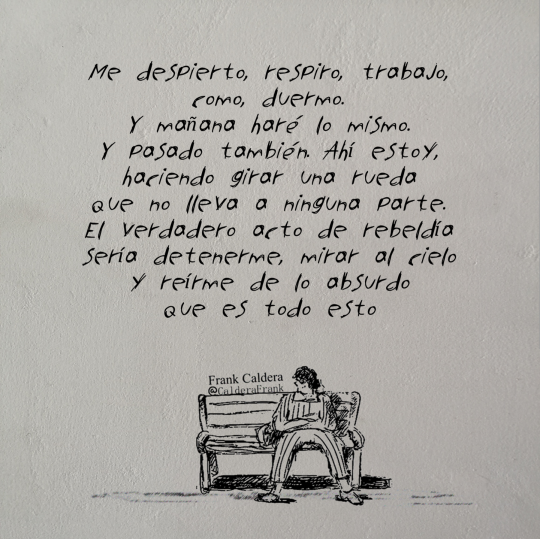 Me despierto, respiro, trabajo,
como, duermo.
Y mañana haré lo mismo.
Y pasado también. Ahí estoy,
haciendo girar una rueda
que no lleva a ninguna parte.
El verdadero acto de rebeldía
sería detenerme, mirar al cielo
y reírme de lo absurdo
que es todo esto
Frank Caldera
@CalderaFrank